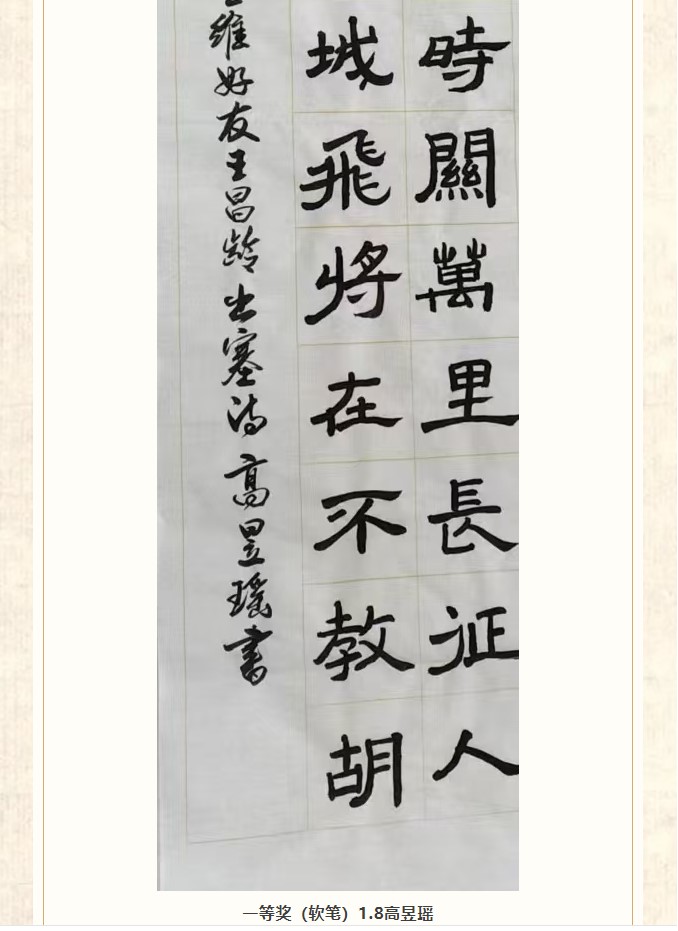 時關萬里長征人
城飛將在不教胡
維好友王昌龄出塞诗 高昱瑶书
一等奖（软笔）1.8高昱瑶